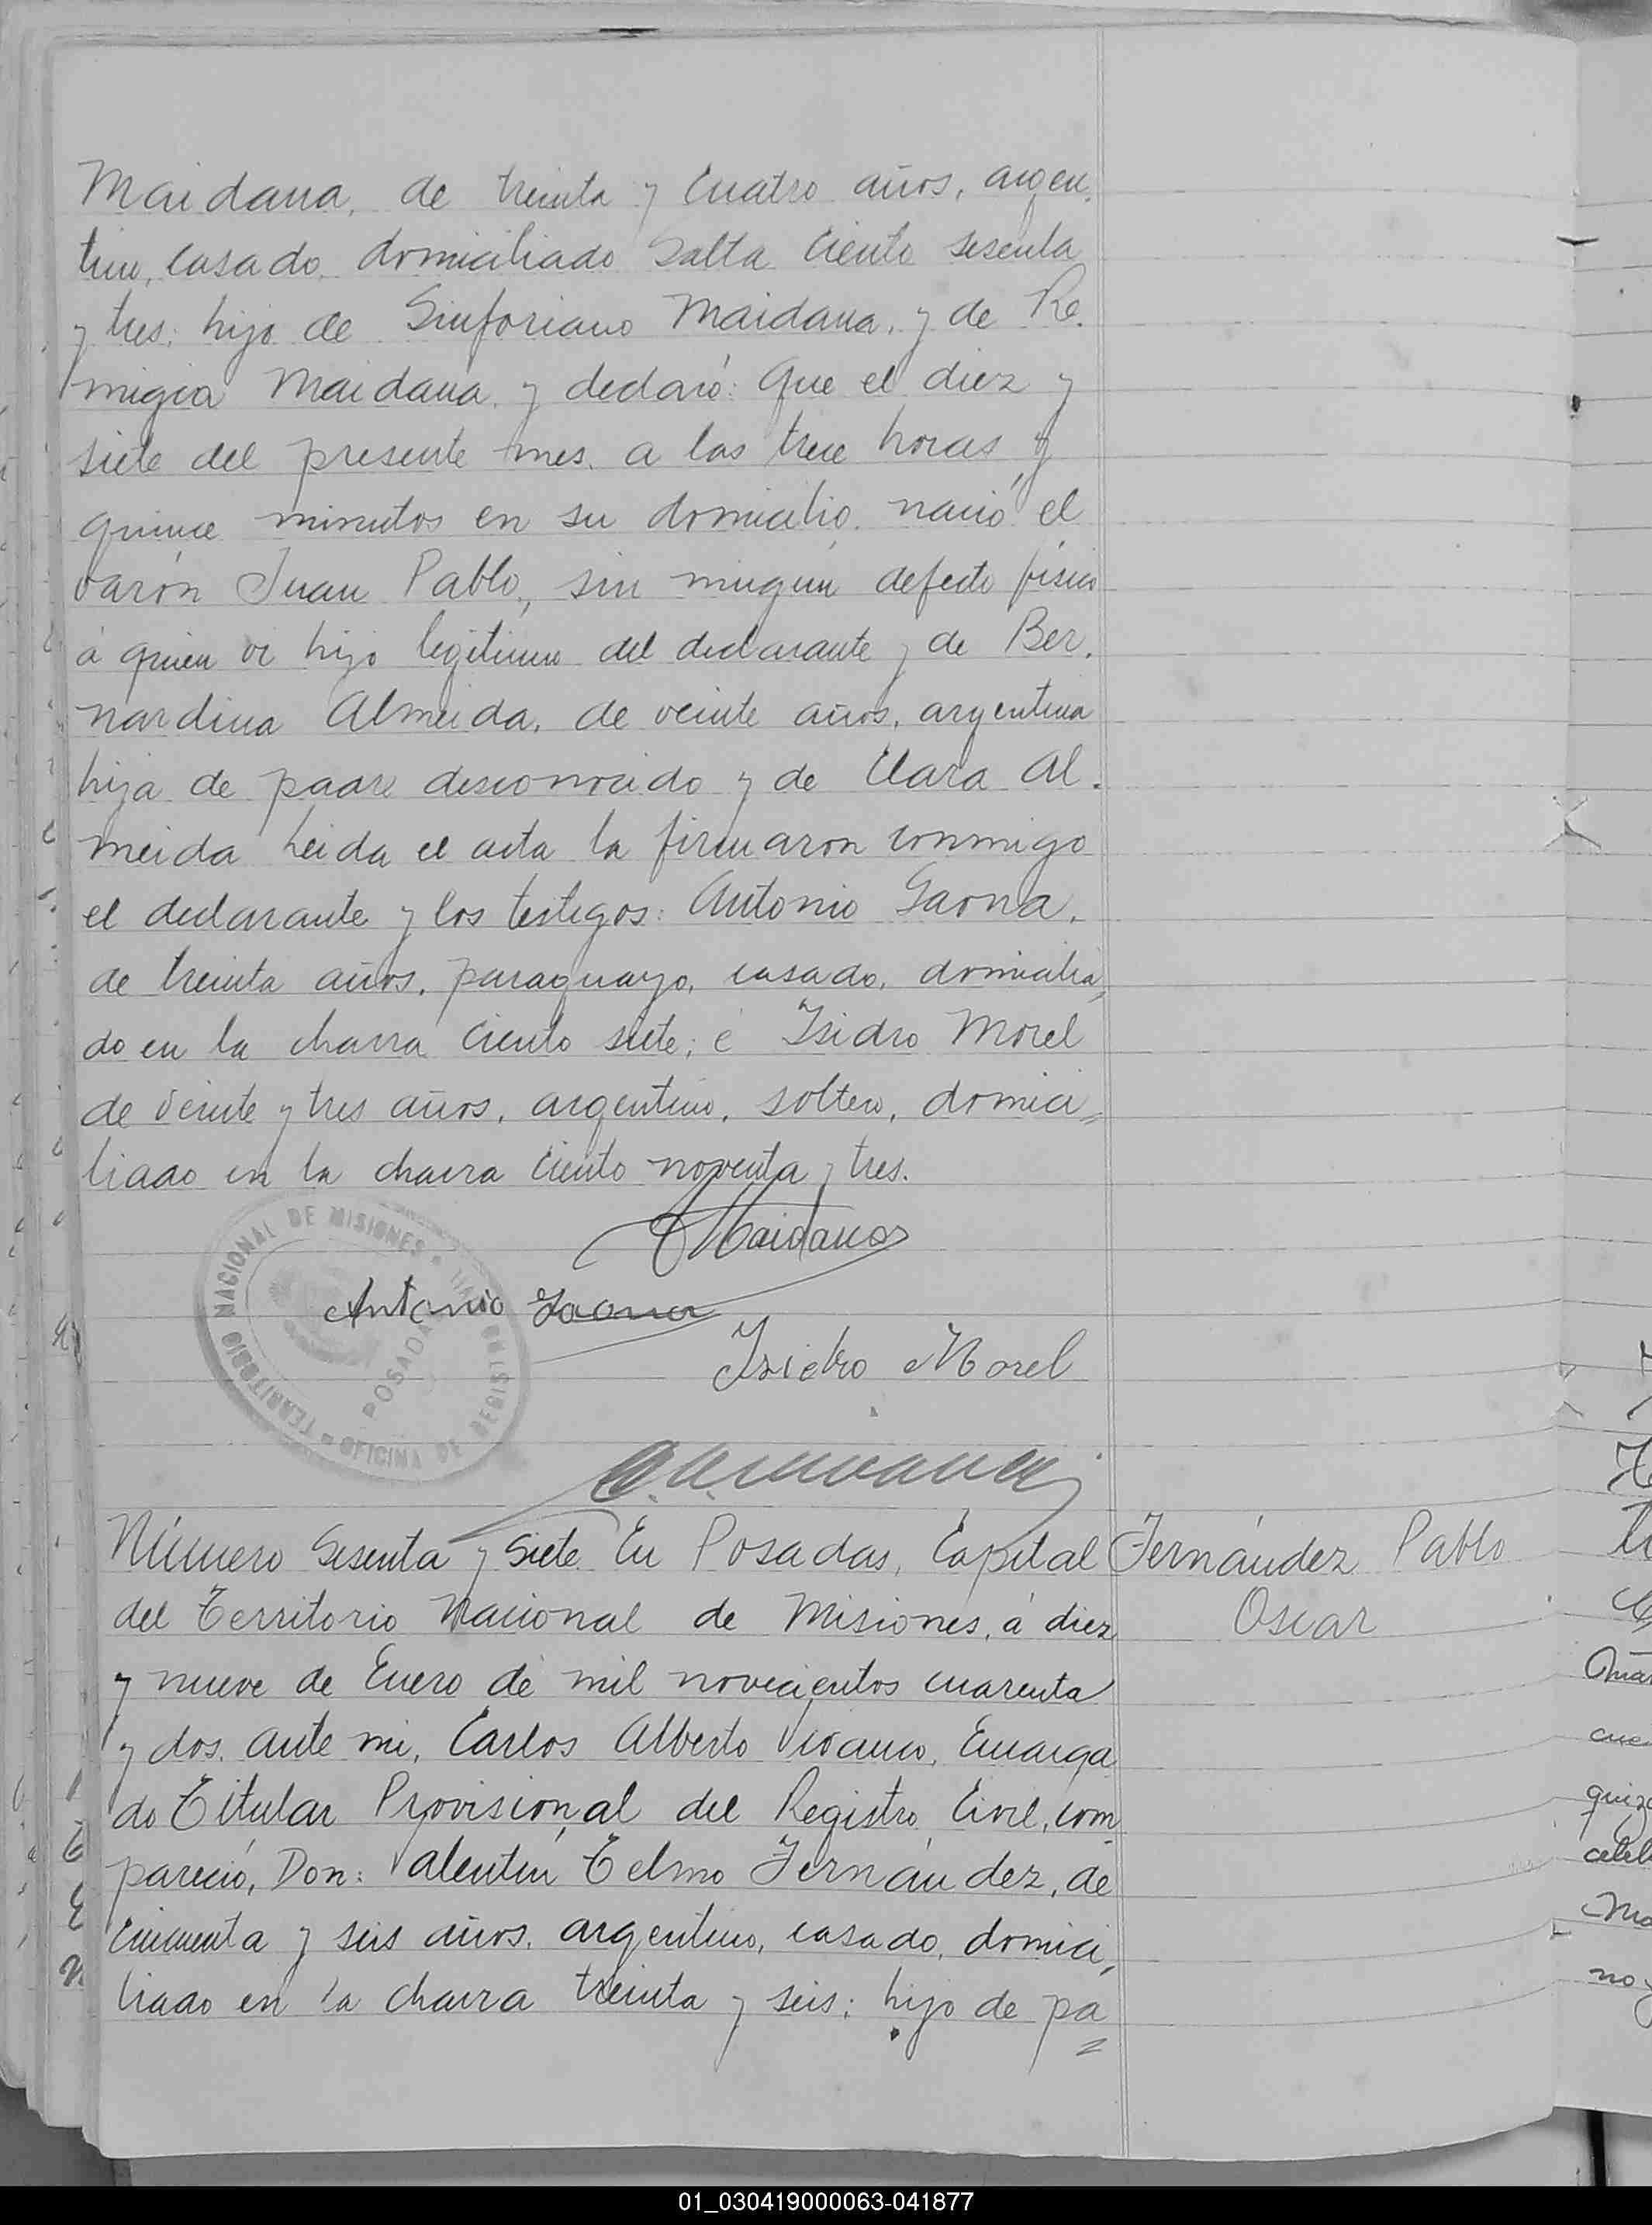 Maidana, de treinta y cuatro años, argen-
tino, casado, domiciliado Salta ciento sesenta
y tres; hijo de Sinforiano Maidana, y de Re-
migia Maidana, y declaró: Que el diez y
siete del presente mes, a las trece horas y
quince minutos en su domicilio, nació el
varón Juan Pablo, sin ningún defecto físico
á quien vi hijo legítimo del declarante y de Ber-
nardina Almeida, de veinte años, argentina
hija de padre desconocido y de Clara Al-
meida Leida el acta la firmaron conmigo
el declarante y los testigos: Antonio Gaona,
de treinta años, paraguayo, casado, domicilia-
do en la chacra ciento siete; é Isidro Morel
de veinte y tres años, argentino, soltero, domici=
liado en la chacra ciento noventa y tres.
Maidana
TERRITORIO NACIONAL DE MISIONES
OFICINA DE REGISTRO
POSADAS
Antonio Gaona
Isidro Morel
Número Sesenta y Siete En Posadas, Capital
Fernández Pablo
Oscar
del Territorio Nacional de Misiones, á diez
y nueve de Enero de mil novecientos cuarenta
y dos, ante mi, Carlos Alberto Vivanco, Encarga
do Titular Provisional del Registro Civil, com
pareció, Don: Valentín Telmo Fernández, de
cincuenta y seis años, argentino, casado, domici-
liado en la chacra treinta y seis; hijo de pa=
01_030419000063-041877